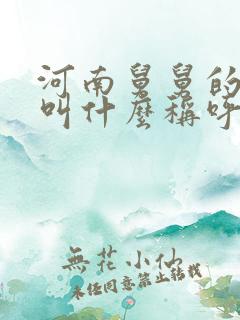 河南舅舅的
叫什麼稱呼
無花小仙
未经同意禁止转载